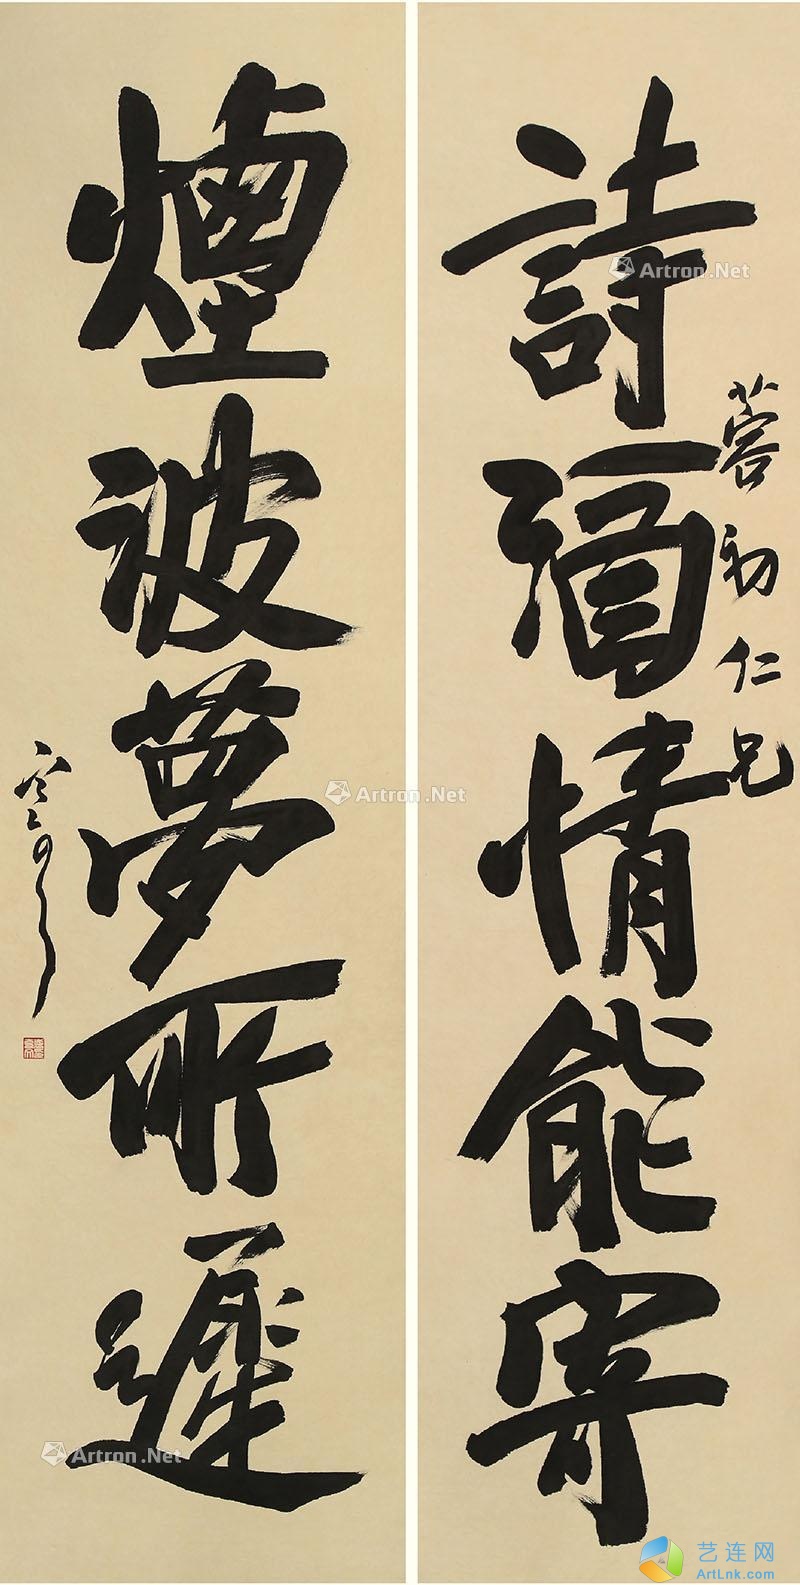 詩酒情能寄
蓉初仁兄
煙波夢所遲
Artron.Net
Artron.Net
Artron.Net
Artron.Net
Artron.Net
艺连网
ArtLnk.com